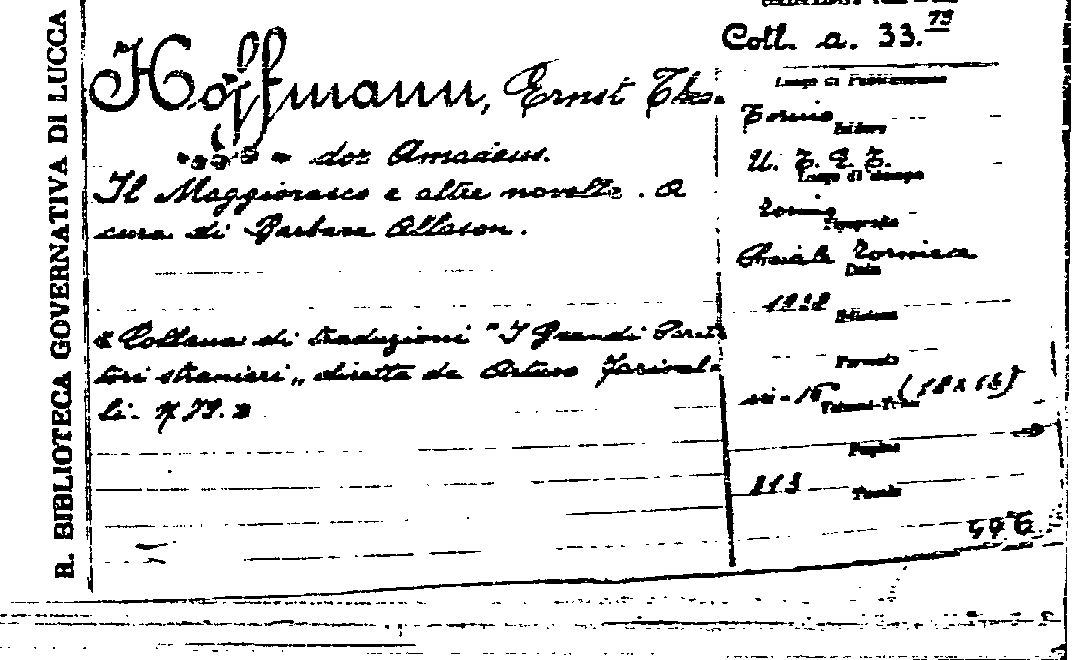 R. BIBLIOTECA GOVERNATIVA DI LUCCA
Coll. a. 33.79
Hoffmann, Ernst Theo-
dor Amadeus.
Il Maggiorasco e altre novelle. A
cura di Barbara Allason.
"Collana di traduzioni "I Grandi Scrit-
tori stranieri„ diretta da Arturo Farinel-
li. N 79."
Luogo di Pubblicazione
Torino
Editore
U. T. E. T.
Luogo di stampa
Torino
Tipografia
Sociale Torinese
Data
Edizione
Formato
in-16 (18x13)
Pagine
213
Tavole